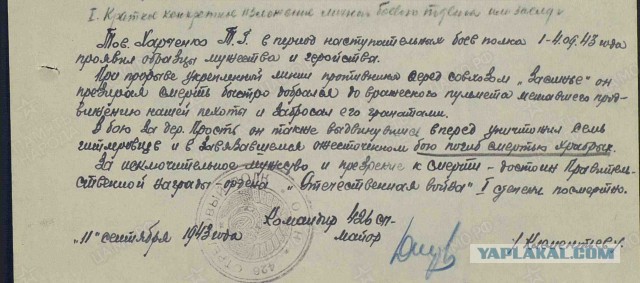 I. Краткое конкретное изложение личного боевого подвига или заслуг
Тов. Харченко Т.Г. в период наступательных боев полка 1-4.09.43 года
проявил образцы мужества и геройства.
При прорыве укрепленной линии противника перед совхозом „Засинье" он
презирая смерть быстро добрался до вражеского пулемета мешавшего прод-
вижению нашей пехоты и забросал его гранатами.
В бою за дер. Прость он также выдвинувшись вперед уничтожил семь
гитлеровцев и в завязавшемся ожесточенном бою погиб смертью храбрых.
За исключительное мужество и презрение к смерти - достоин Правитель-
ственной награды - ордена „Отечественная война" I степени посмертно.
Командир 426 сп -
майор
„11" сентября 1943 года
YAPLAKAL.COM